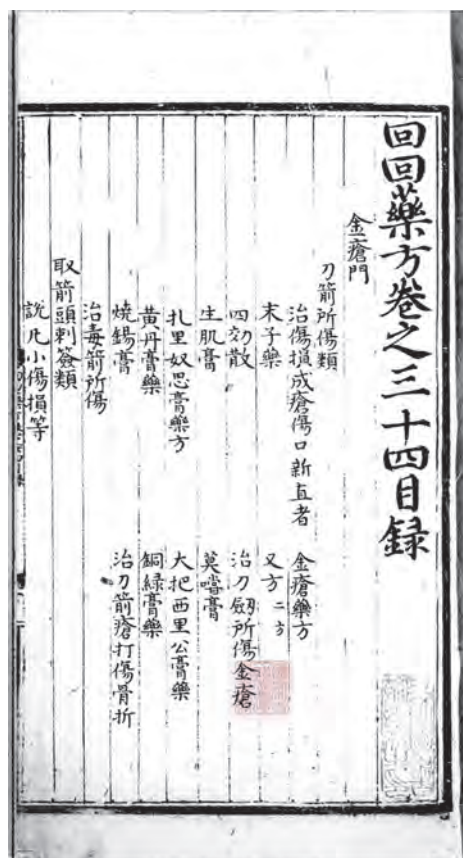 回回藥方卷之三十四目録
金瘡門
刀箭所傷類
治傷損成瘡傷口新直者 金瘡藥方
末子藥 又方二方
四効散 治刀劔所傷金瘡
生肌膏 莫嚐膏
扎里奴思膏藥方 大把西里公膏藥
黃丹膏藥 銅綠膏藥
燒錫膏 治刀箭瘡打傷骨折
治毒箭所傷
取箭頭刺簽類
說凡小傷損等